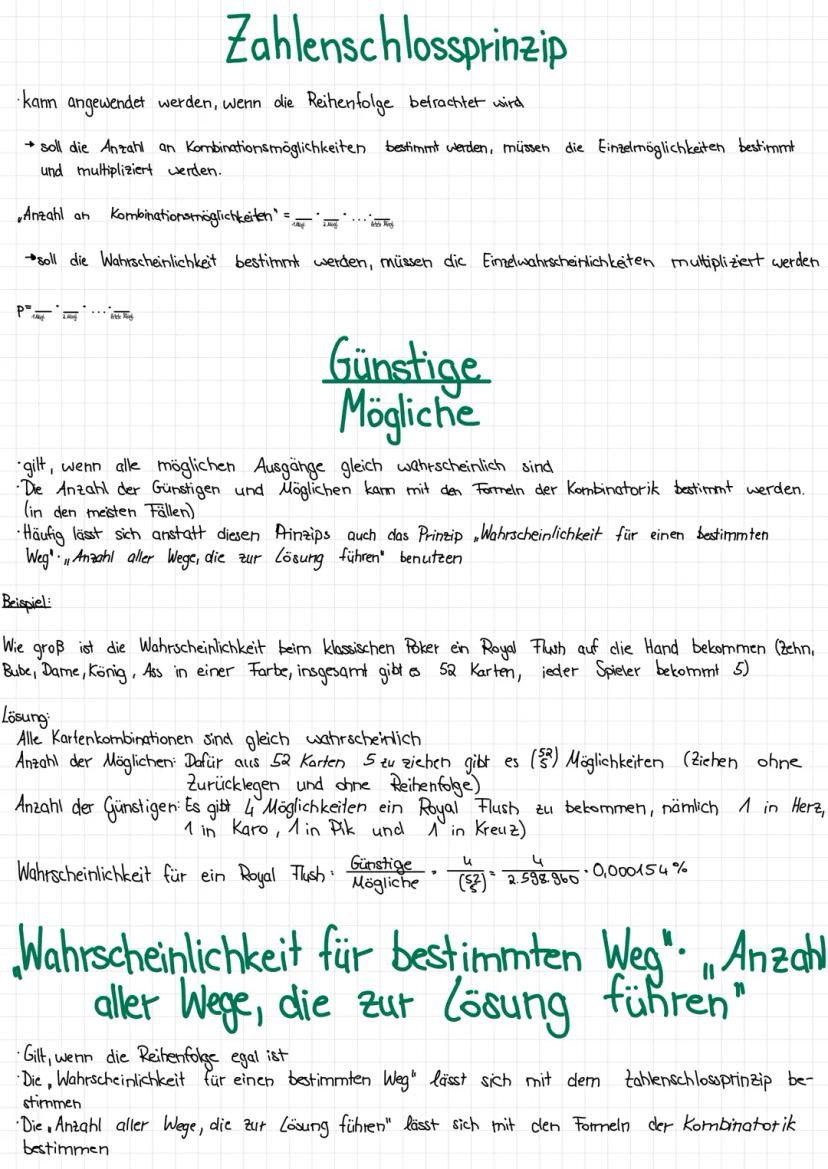 Zahlenschlossprinzip
·kann angewendet werden, wenn die Reihenfolge betrachtet wird
→ soll die Anzahl an Kombinationsmöglichkeiten bestimmt werden, müssen die Einzelmöglichkeiten bestimmt
und multipliziert werden.
„Anzahl an Kombinationsmöglichkeiten" = __ · __ · ... · __
→soll die Wahrscheinlichkeit bestimmt werden, müssen die Einzelwahrscheinlichkeiten multipliziert werden
P= __ · __ · ... · __
Günstige
Mögliche
·gilt, wenn alle möglichen Ausgänge gleich wahrscheinlich sind
·Die Anzahl der Günstigen und Möglichen kann mit den Formeln der Kombinatorik bestimmt werden.
(in den meisten Fällen)
·Häufig lässt sich anstatt diesen Prinzips auch das Prinzip „Wahrscheinlichkeit für einen bestimmten
Weg"·„Anzahl aller Wege, die zur Lösung führen" benutzen
Beispiel:
Wie groß ist die Wahrscheinlichkeit beim klassischen Poker ein Royal Flush auf die Hand bekommen (Zehn,
Bube, Dame, König, Ass in einer Farbe, insgesamt gibt es 52 Karten, jeder Spieler bekommt 5)
Lösung:
Alle Kartenkombinationen sind gleich wahrscheinlich
Anzahl der Möglichen: Dafür aus 52 Karten 5 zu ziehen gibt es (52 5) Möglichkeiten (Ziehen ohne
Zurücklegen und ohne Reihenfolge)
Anzahl der Günstigen: Es gibt 4 Möglichkeiten ein Royal Flush zu bekommen, nämlich 1 in Herz,
1 in Karo, 1 in Pik und 1 in Kreuz)
Wahrscheinlichkeit für ein Royal Flush: Günstige/Mögliche = 4/(52 5) = 4/2.598.960 = 0,000154%
„Wahrscheinlichkeit für bestimmten Weg"· „Anzahl
aller Wege, die zur Lösung führen"
·Gilt, wenn die Reihenfolge egal ist
·Die „Wahrscheinlichkeit für einen bestimmten Weg" lässt sich mit dem Zahlenschlossprinzip be-
stimmen
·Die „Anzahl aller Wege, die zur Lösung führen" lässt sich mit den Formeln der Kombinatorik
bestimmen